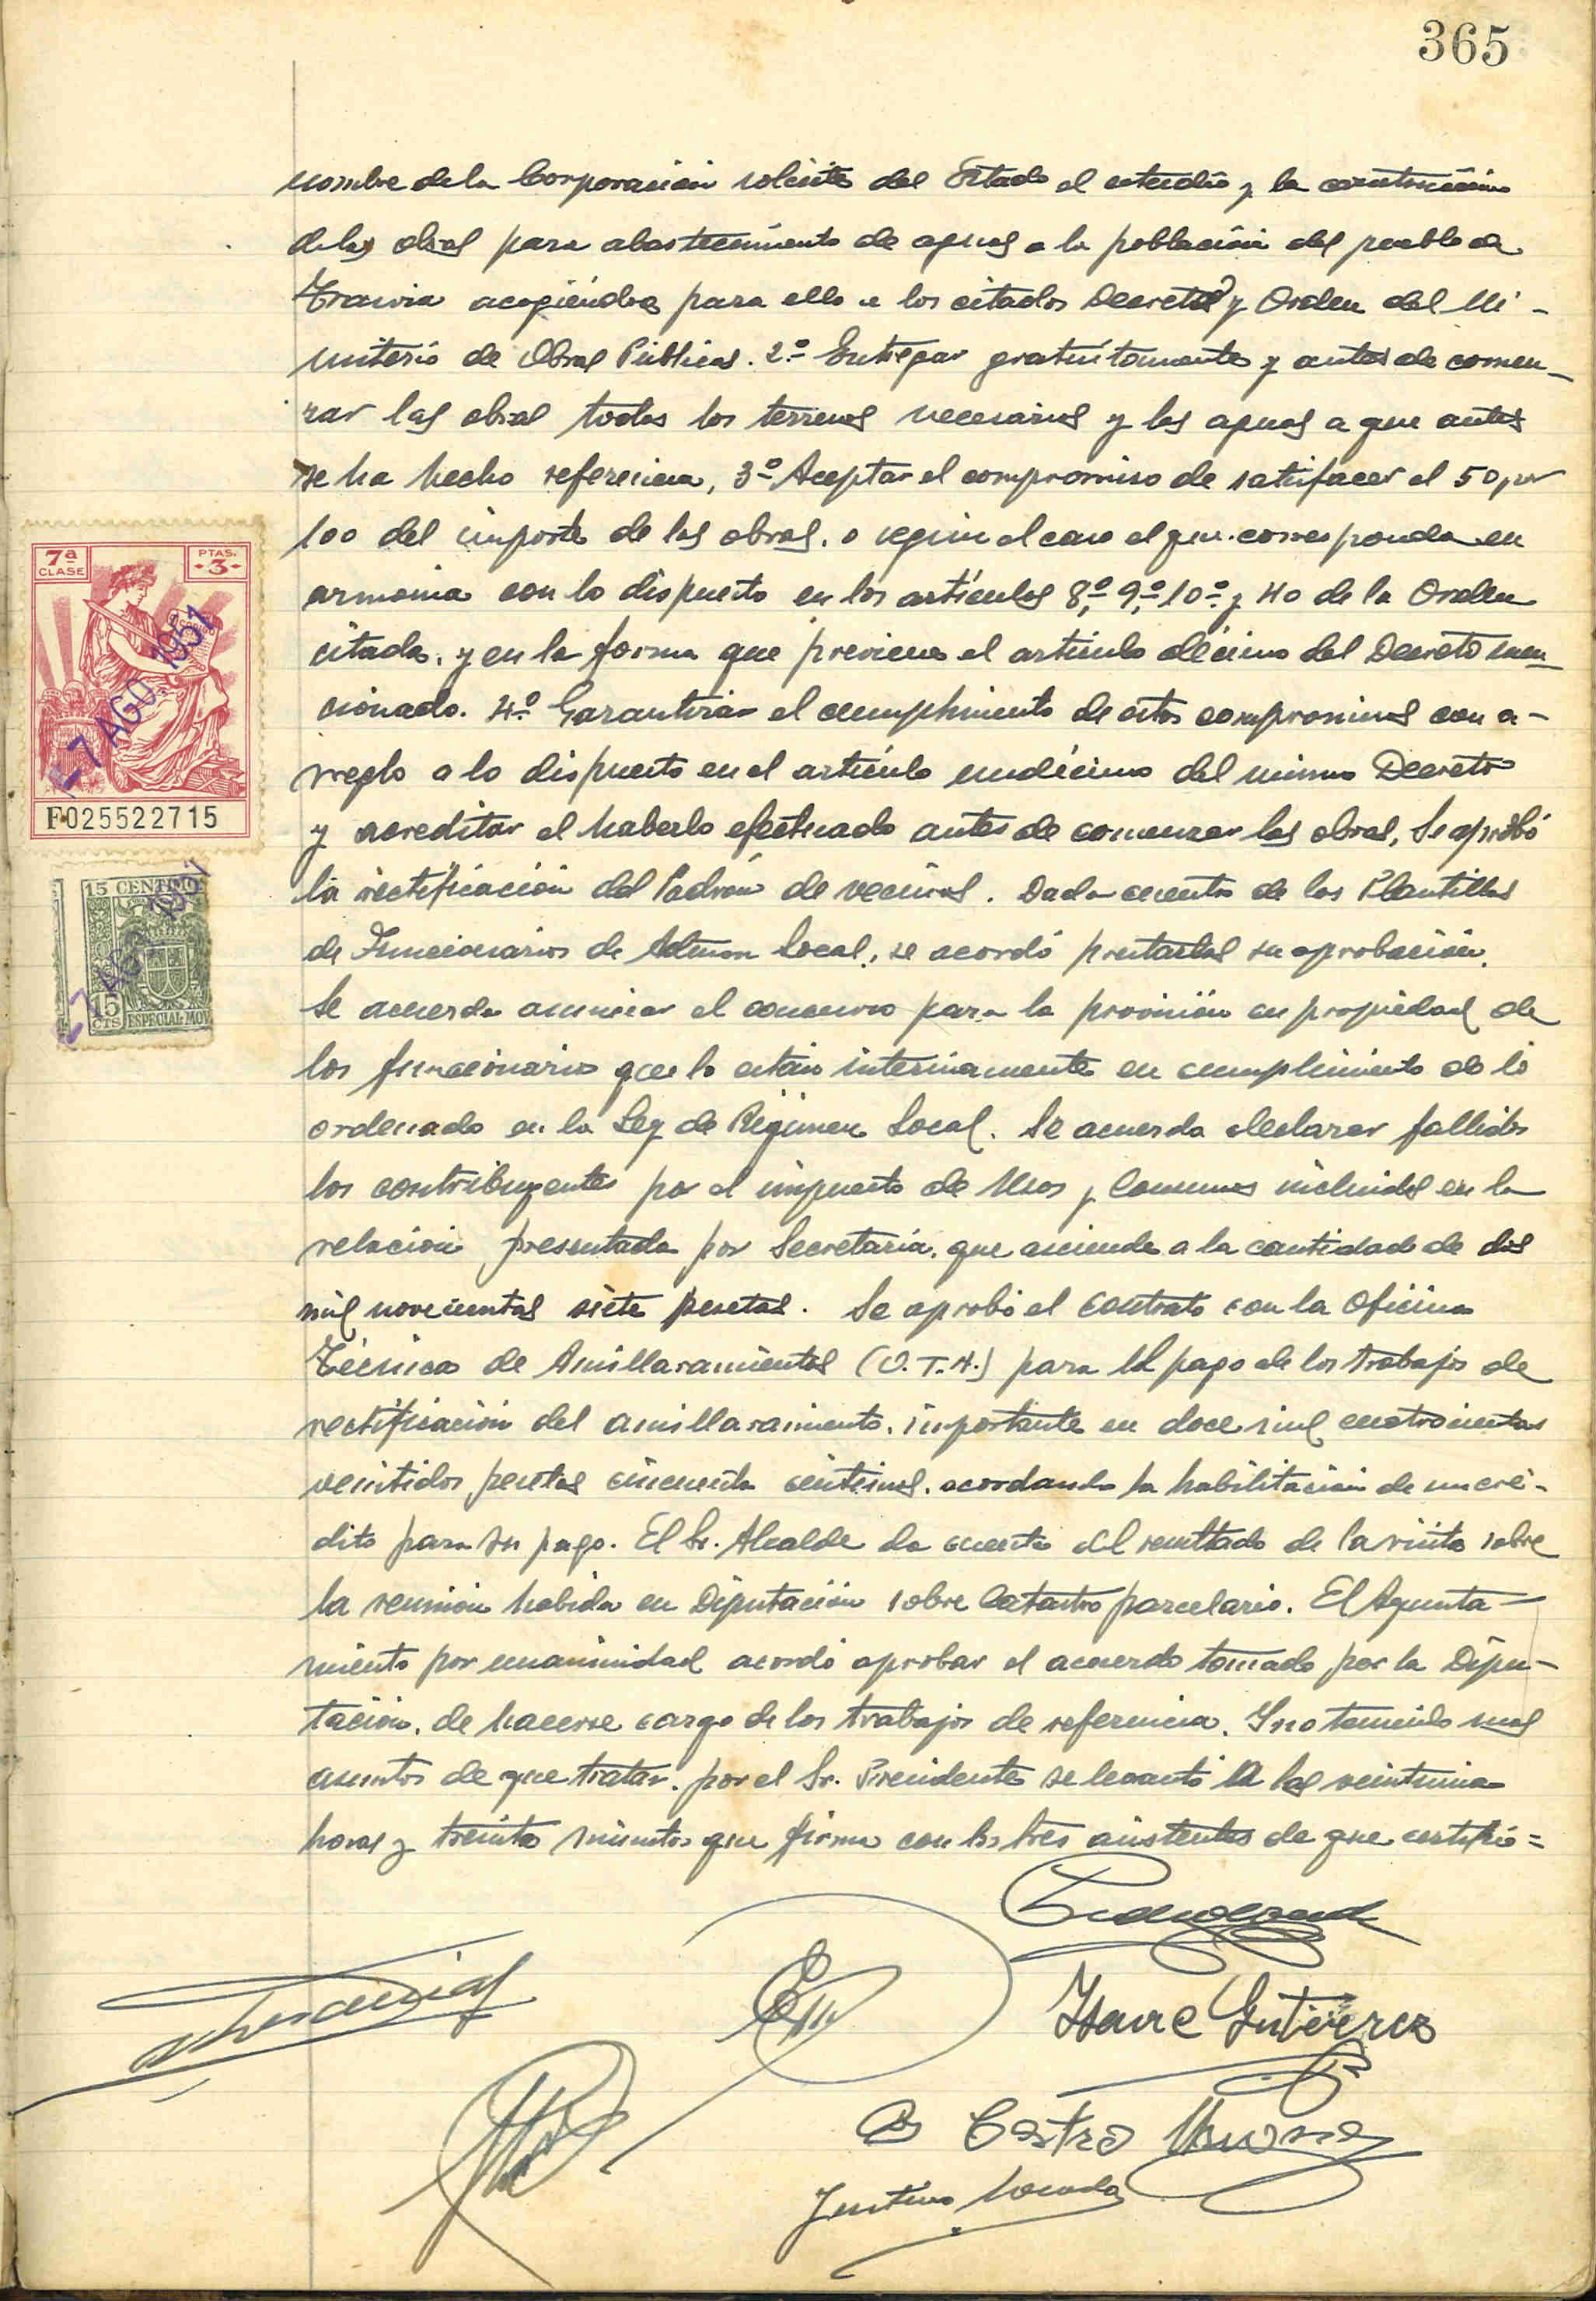 365
nombre de la Corporación solicite del Estado el estudio y la construcción
de las obras para abastecimiento de aguas a la población del pueblo de
acogiéndose para ello a los citados Decretos y Orden del Mi-
nisterio de Obras Públicas. 2º- Entregar gratuitamente y antes de comen-
zar las obras todos los terrenos necesarios y las aguas a que antes
se ha hecho referencia, 3º Aceptar el compromiso de satisfacer el 50 por
100 del importe de las obras, o según el caso el que corresponda en
armonia con lo dispuesto en los artículos 8º, 9º, 10º y 40 de la Orden
citada, y en la forma que previene el artículo décimo del Decreto men-
cionado. 4º Garantizar el cumplimiento de estos compromisos con a-
rreglo a lo dispuesto en el artículo undécimo del mismo Decreto
y acreditar el haberlo efectuado antes de comenzar las obras, Se aprobó
la rectificación del Padrón de vecinos. Dada cuenta de las Plantillas
de Funcionarios de Admon Local, se acordó prestarles su aprobación.
Se acuerda anunciar el concurso para la provisión en propiedad de
los funcionarios que lo están interinamente en cumplimiento de lo
ordenado en la Ley de Régimen Local. Se acuerda declarar fallidos
los contribuyentes por el impuesto de Usos y Consumos incluidos en la
relación presentada por Secretaría, que asciende a la cantidad de dos
mil novecientas siete pesetas. Se aprobó el contrato con la Oficina
Técnica de Amillaramientos (O.T.A.) para el pago de los trabajos de
rectificación del amillaramiento, importante en doce mil cuatrocientas
veintidos pesetas cincuenta centimos, acordando la habilitación de un cré-
dito para su pago. El Sr. Alcalde da cuenta del resultado de la visita sobre
la reunión habida en Diputación sobre Catastro parcelario. El Ayunta-
miento por unanimidad acordó aprobar el acuerdo tomado por la Dipu-
tación, de hacerse cargo de los trabajos de referencia. Y no teniendo mas
asuntos de que tratar, por el Sr. Presidente se levantó a las veintiuna
horas y treinta minutos que firma con los tres asistentes de que certifico=
7ª CLASE
PTAS. 3
- 7 AGO. 1951
F025522715
15 CENTIMOS
- 7 AGO 1951
15 CTS
ESPECIAL MOV
Gutierrez
Castro